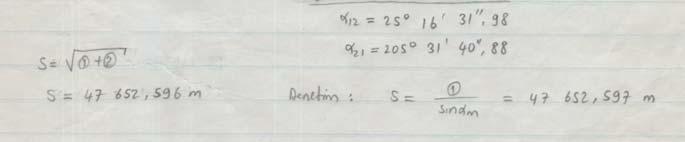 α₁₂ = 25° 16' 31",98
α₂₁ = 205° 31' 40",88
S = √①+②
S = 47 652,596 m
Denetim : S = ① / sinαm = 47 652,597 m